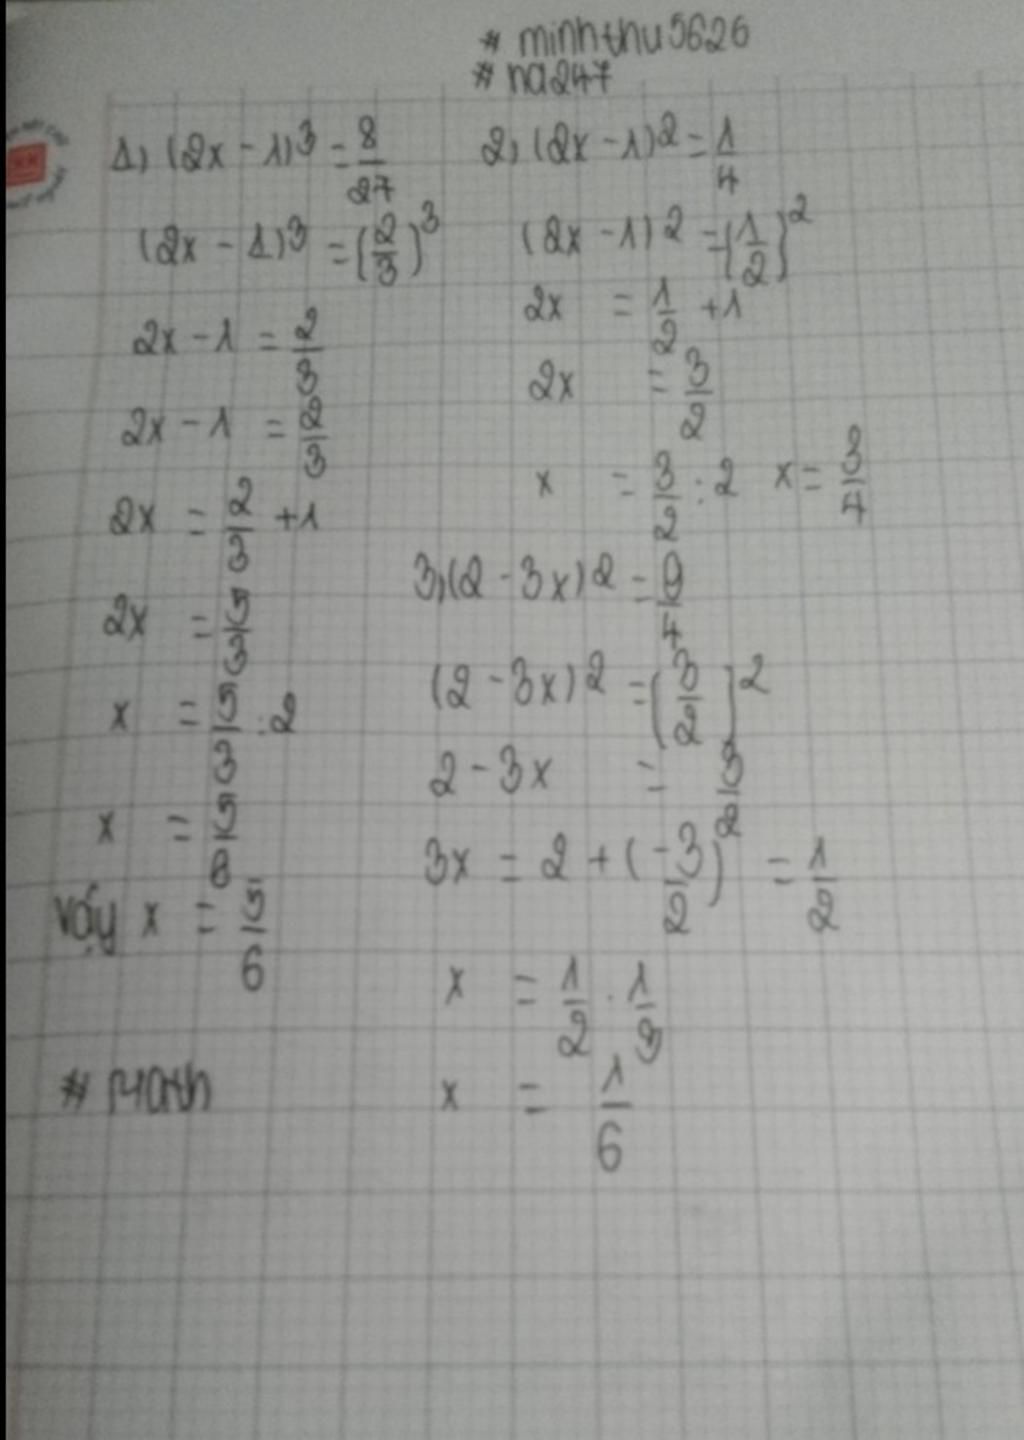 # minhthu5626
# na247
1, (2x - 1)3 = 8/27
(2x - 1)3 = (2/3)3
2x - 1 = 2/3
2x - 1 = 2/3
2x = 2/3 + 1
2x = 5/3
x = 5/3 : 2
x = 5/6
Vậy x = 5/6
# Math
2, (2x - 1)2 = 1/4
(2x - 1)2 = (1/2)2
2x = 1/2 + 1
2x = 3/2
x = 3/2 : 2 x = 3/4
3, (2 - 3x)2 = 9/4
(2 - 3x)2 = (3/2)2
2 - 3x = 3/2
3x = 2 + (-3/2) = 1/2
x = 1/2 . 1/3
x = 1/6